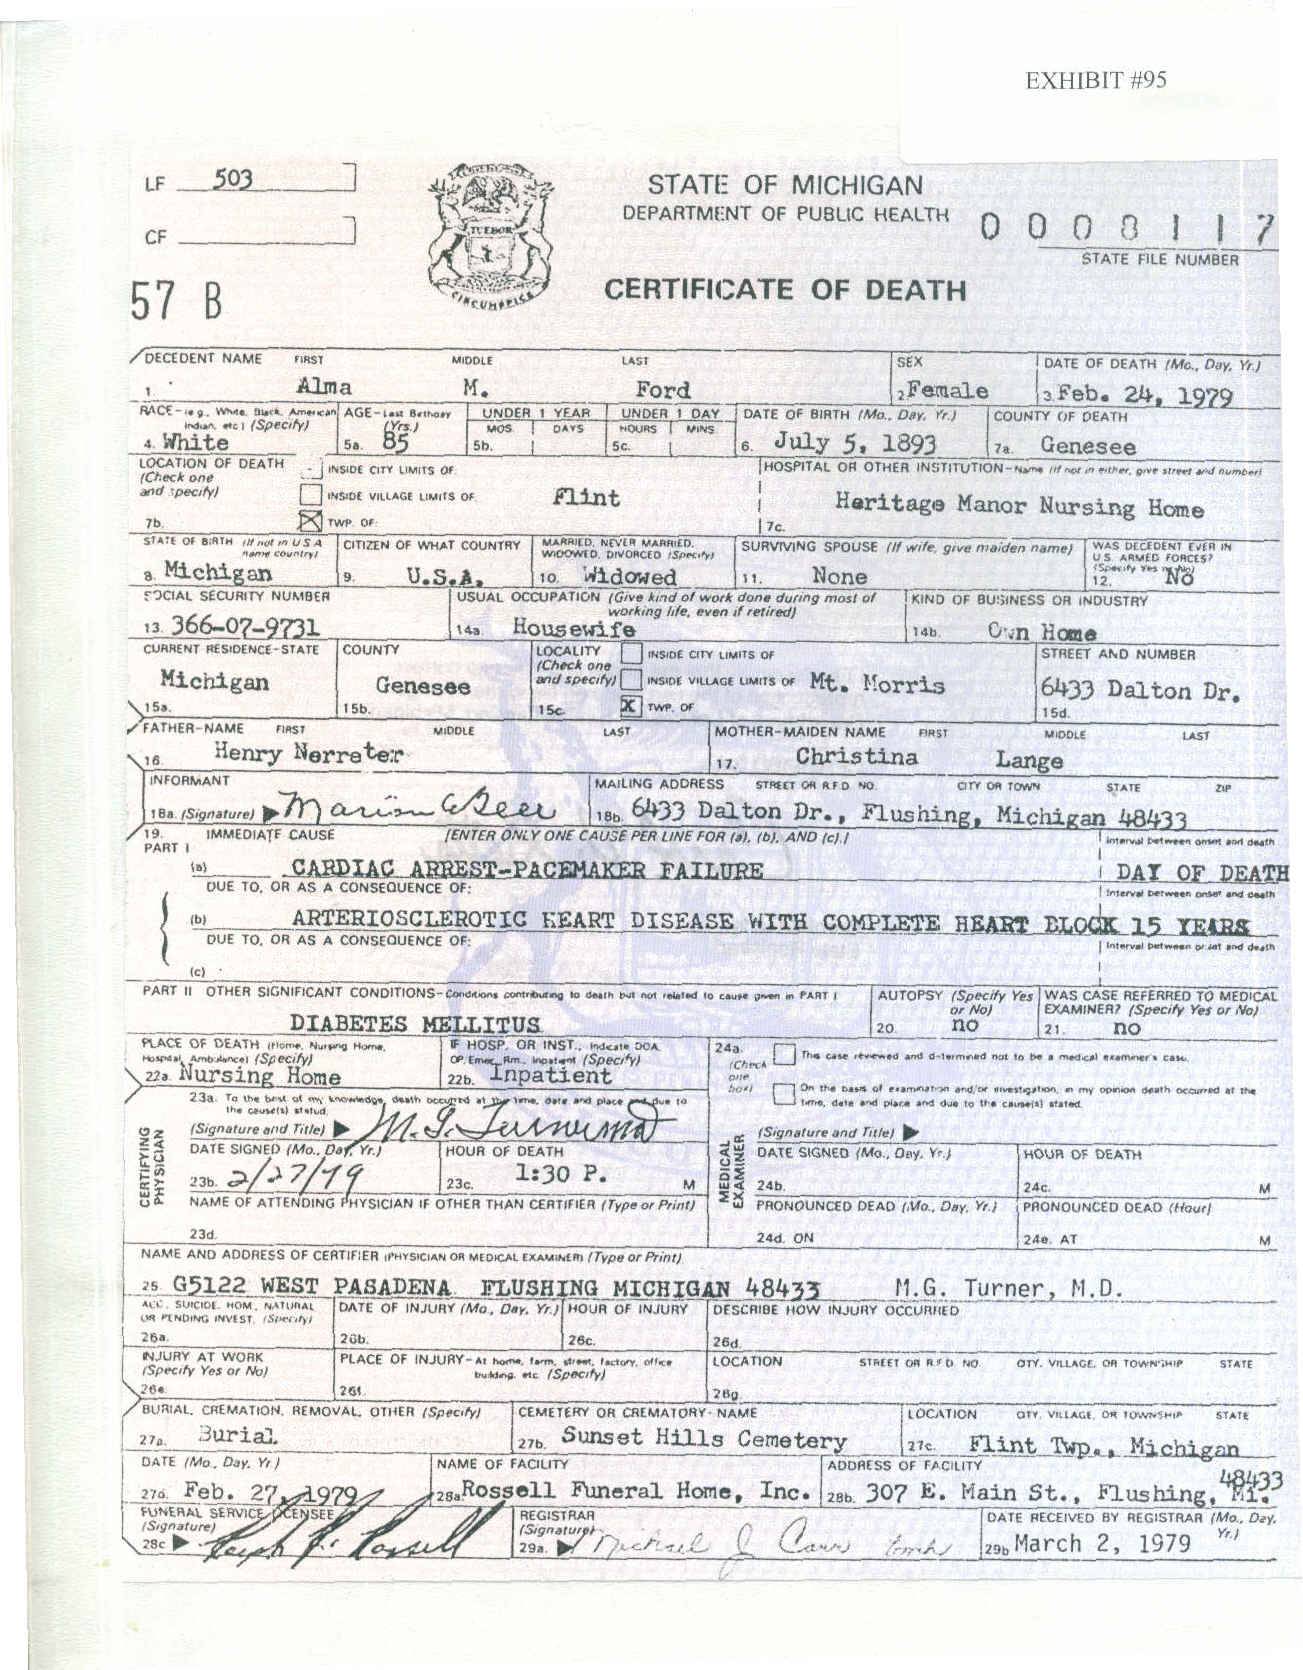 EXHIBIT #95
LF 503
CF
57 B
TUEBOR
CIRCUMSPICE
STATE OF MICHIGAN
DEPARTMENT OF PUBLIC HEALTH
0008117
STATE FILE NUMBER
CERTIFICATE OF DEATH
DECEDENT NAME FIRST MIDDLE LAST SEX DATE OF DEATH (Mo., Day, Yr.)
1. Alma M. Ford 2. Female 3. Feb. 24, 1979
RACE-(e.g., White, Black, American Indian, etc.) (Specify) AGE-Last Birthday (Yrs.) UNDER 1 YEAR UNDER 1 DAY DATE OF BIRTH (Mo., Day, Yr.) COUNTY OF DEATH
MOS. DAYS HOURS MINS
4. White 5a. 85 5b. 5c. 6. July 5, 1893 7a. Genesee
LOCATION OF DEATH (Check one and specify) INSIDE CITY LIMITS OF HOSPITAL OR OTHER INSTITUTION-Name (If not in either, give street and number)
INSIDE VILLAGE LIMITS OF Flint Heritage Manor Nursing Home
7b. TWP. OF 7c.
STATE OF BIRTH (If not in USA name country) CITIZEN OF WHAT COUNTRY MARRIED, NEVER MARRIED, WIDOWED, DIVORCED (Specify) SURVIVING SPOUSE (If wife, give maiden name) WAS DECEDENT EVER IN U.S. ARMED FORCES? (Specify Yes or No)
8. Michigan 9. U.S.A. 10. Widowed 11. None 12. No
SOCIAL SECURITY NUMBER USUAL OCCUPATION (Give kind of work done during most of working life, even if retired) KIND OF BUSINESS OR INDUSTRY
13. 366-07-9731 14a. Housewife 14b. Own Home
CURRENT RESIDENCE-STATE COUNTY LOCALITY (Check one and specify) INSIDE CITY LIMITS OF STREET AND NUMBER
Michigan Genesee INSIDE VILLAGE LIMITS OF Mt. Morris 6433 Dalton Dr.
15a. 15b. 15c. X TWP. OF 15d.
FATHER-NAME FIRST MIDDLE LAST MOTHER-MAIDEN NAME FIRST MIDDLE LAST
16. Henry Nerreter 17. Christina Lange
INFORMANT MAILING ADDRESS STREET OR R.F.D. NO. CITY OR TOWN STATE ZIP
18a. (Signature) Marion 18b. 6433 Dalton Dr., Flushing, Michigan 48433
19. IMMEDIATE CAUSE (ENTER ONLY ONE CAUSE PER LINE FOR (a), (b), AND (c).) Interval between onset and death
PART I
(a) CARDIAC ARREST-PACEMAKER FAILURE DAY OF DEATH
DUE TO, OR AS A CONSEQUENCE OF: Interval between onset and death
(b) ARTERIOSCLEROTIC HEART DISEASE WITH COMPLETE HEART BLOCK 15 YEARS
DUE TO, OR AS A CONSEQUENCE OF: Interval between onset and death
(c)
PART II OTHER SIGNIFICANT CONDITIONS-Conditions contributing to death but not related to cause given in PART I AUTOPSY (Specify Yes or No) WAS CASE REFERRED TO MEDICAL EXAMINER? (Specify Yes or No)
DIABETES MELLITUS 20. no 21. no
PLACE OF DEATH (Home, Nursing Home, Hospital, Ambulance) (Specify) IF HOSP. OR INST., Indicate DOA, OP, Emer. Rm., Inpatient (Specify) 24a. (Check one box) This case reviewed and determined not to be a medical examiner's case.
22a. Nursing Home 22b. Inpatient On the basis of examination and/or investigation, in my opinion death occurred at the time, date and place and due to the cause(s) stated.
23a. To the best of my knowledge, death occurred at the time, date and place and due to the cause(s) stated.
CERTIFYING PHYSICIAN
(Signature and Title) M. G. Turner MD
MEDICAL EXAMINER
(Signature and Title)
DATE SIGNED (Mo., Day, Yr.) HOUR OF DEATH DATE SIGNED (Mo., Day, Yr.) HOUR OF DEATH
23b. 2/27/79 23c. 1:30 P. M 24b. 24c. M
NAME OF ATTENDING PHYSICIAN IF OTHER THAN CERTIFIER (Type or Print) PRONOUNCED DEAD (Mo., Day, Yr.) PRONOUNCED DEAD (Hour)
23d. 24d. ON 24e. AT M
NAME AND ADDRESS OF CERTIFIER (PHYSICIAN OR MEDICAL EXAMINER) (Type or Print)
25. G5122 WEST PASADENA FLUSHING MICHIGAN 48433 M.G. Turner, M.D.
ACC., SUICIDE, HOM., NATURAL OR PENDING INVEST. (Specify) DATE OF INJURY (Mo., Day, Yr.) HOUR OF INJURY DESCRIBE HOW INJURY OCCURRED
26a. 26b. 26c. 26d.
INJURY AT WORK (Specify Yes or No) PLACE OF INJURY-At home, farm, street, factory, office building, etc. (Specify) LOCATION STREET OR R.F.D. NO. CITY, VILLAGE, OR TOWNSHIP STATE
26e. 26f. 26g.
BURIAL, CREMATION, REMOVAL, OTHER (Specify) CEMETERY OR CREMATORY-NAME LOCATION CITY, VILLAGE, OR TOWNSHIP STATE
27a. Burial 27b. Sunset Hills Cemetery 27c. Flint Twp., Michigan
DATE (Mo., Day, Yr.) NAME OF FACILITY ADDRESS OF FACILITY
27d. Feb. 27, 1979 28a. Rossell Funeral Home, Inc. 28b. 307 E. Main St., Flushing, Mi. 48433
FUNERAL SERVICE LICENSEE (Signature) REGISTRAR (Signature) DATE RECEIVED BY REGISTRAR (Mo., Day, Yr.)
28c. Rossell 29a. Michael J. Carr 29b. March 2, 1979